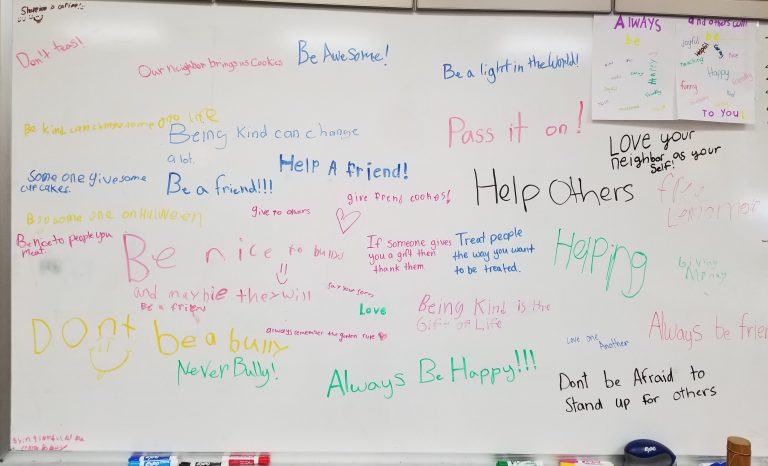 Don't teas!
Our neighbor brings us cookies
Be Awesome!
Be a light in the World!
ALWAYS
be
and others will
be
Joyful
nice
Happy
funny
friendly
kind
TO YOU!
Be kind can change some one life
Being Kind can change
a lot.
Pass it on!
LOVE your
neighbor as your
self!
Some one give some
cup cakes.
Be a friend!!!
Help A friend!
give frend cookies!
Help Others
free
Lemonade
Boo some one on Hulween
give to others
Be nice to people you
meat.
Be nice to bullys
and maybie they will
Be a friend
If someone gives
you a gift then
thank them
Treat people
the way you want
to be treated.
Helping
Giving
Money
Say your sorry
Love
Being Kind is the
Gift of Life
DOnt be a bully
always remember the golden rule
Love one
Another
Always be frien
Never Bully!
Always Be Happy!!!
Dont be Afraid to
Stand up for others
EXPO
EXPO